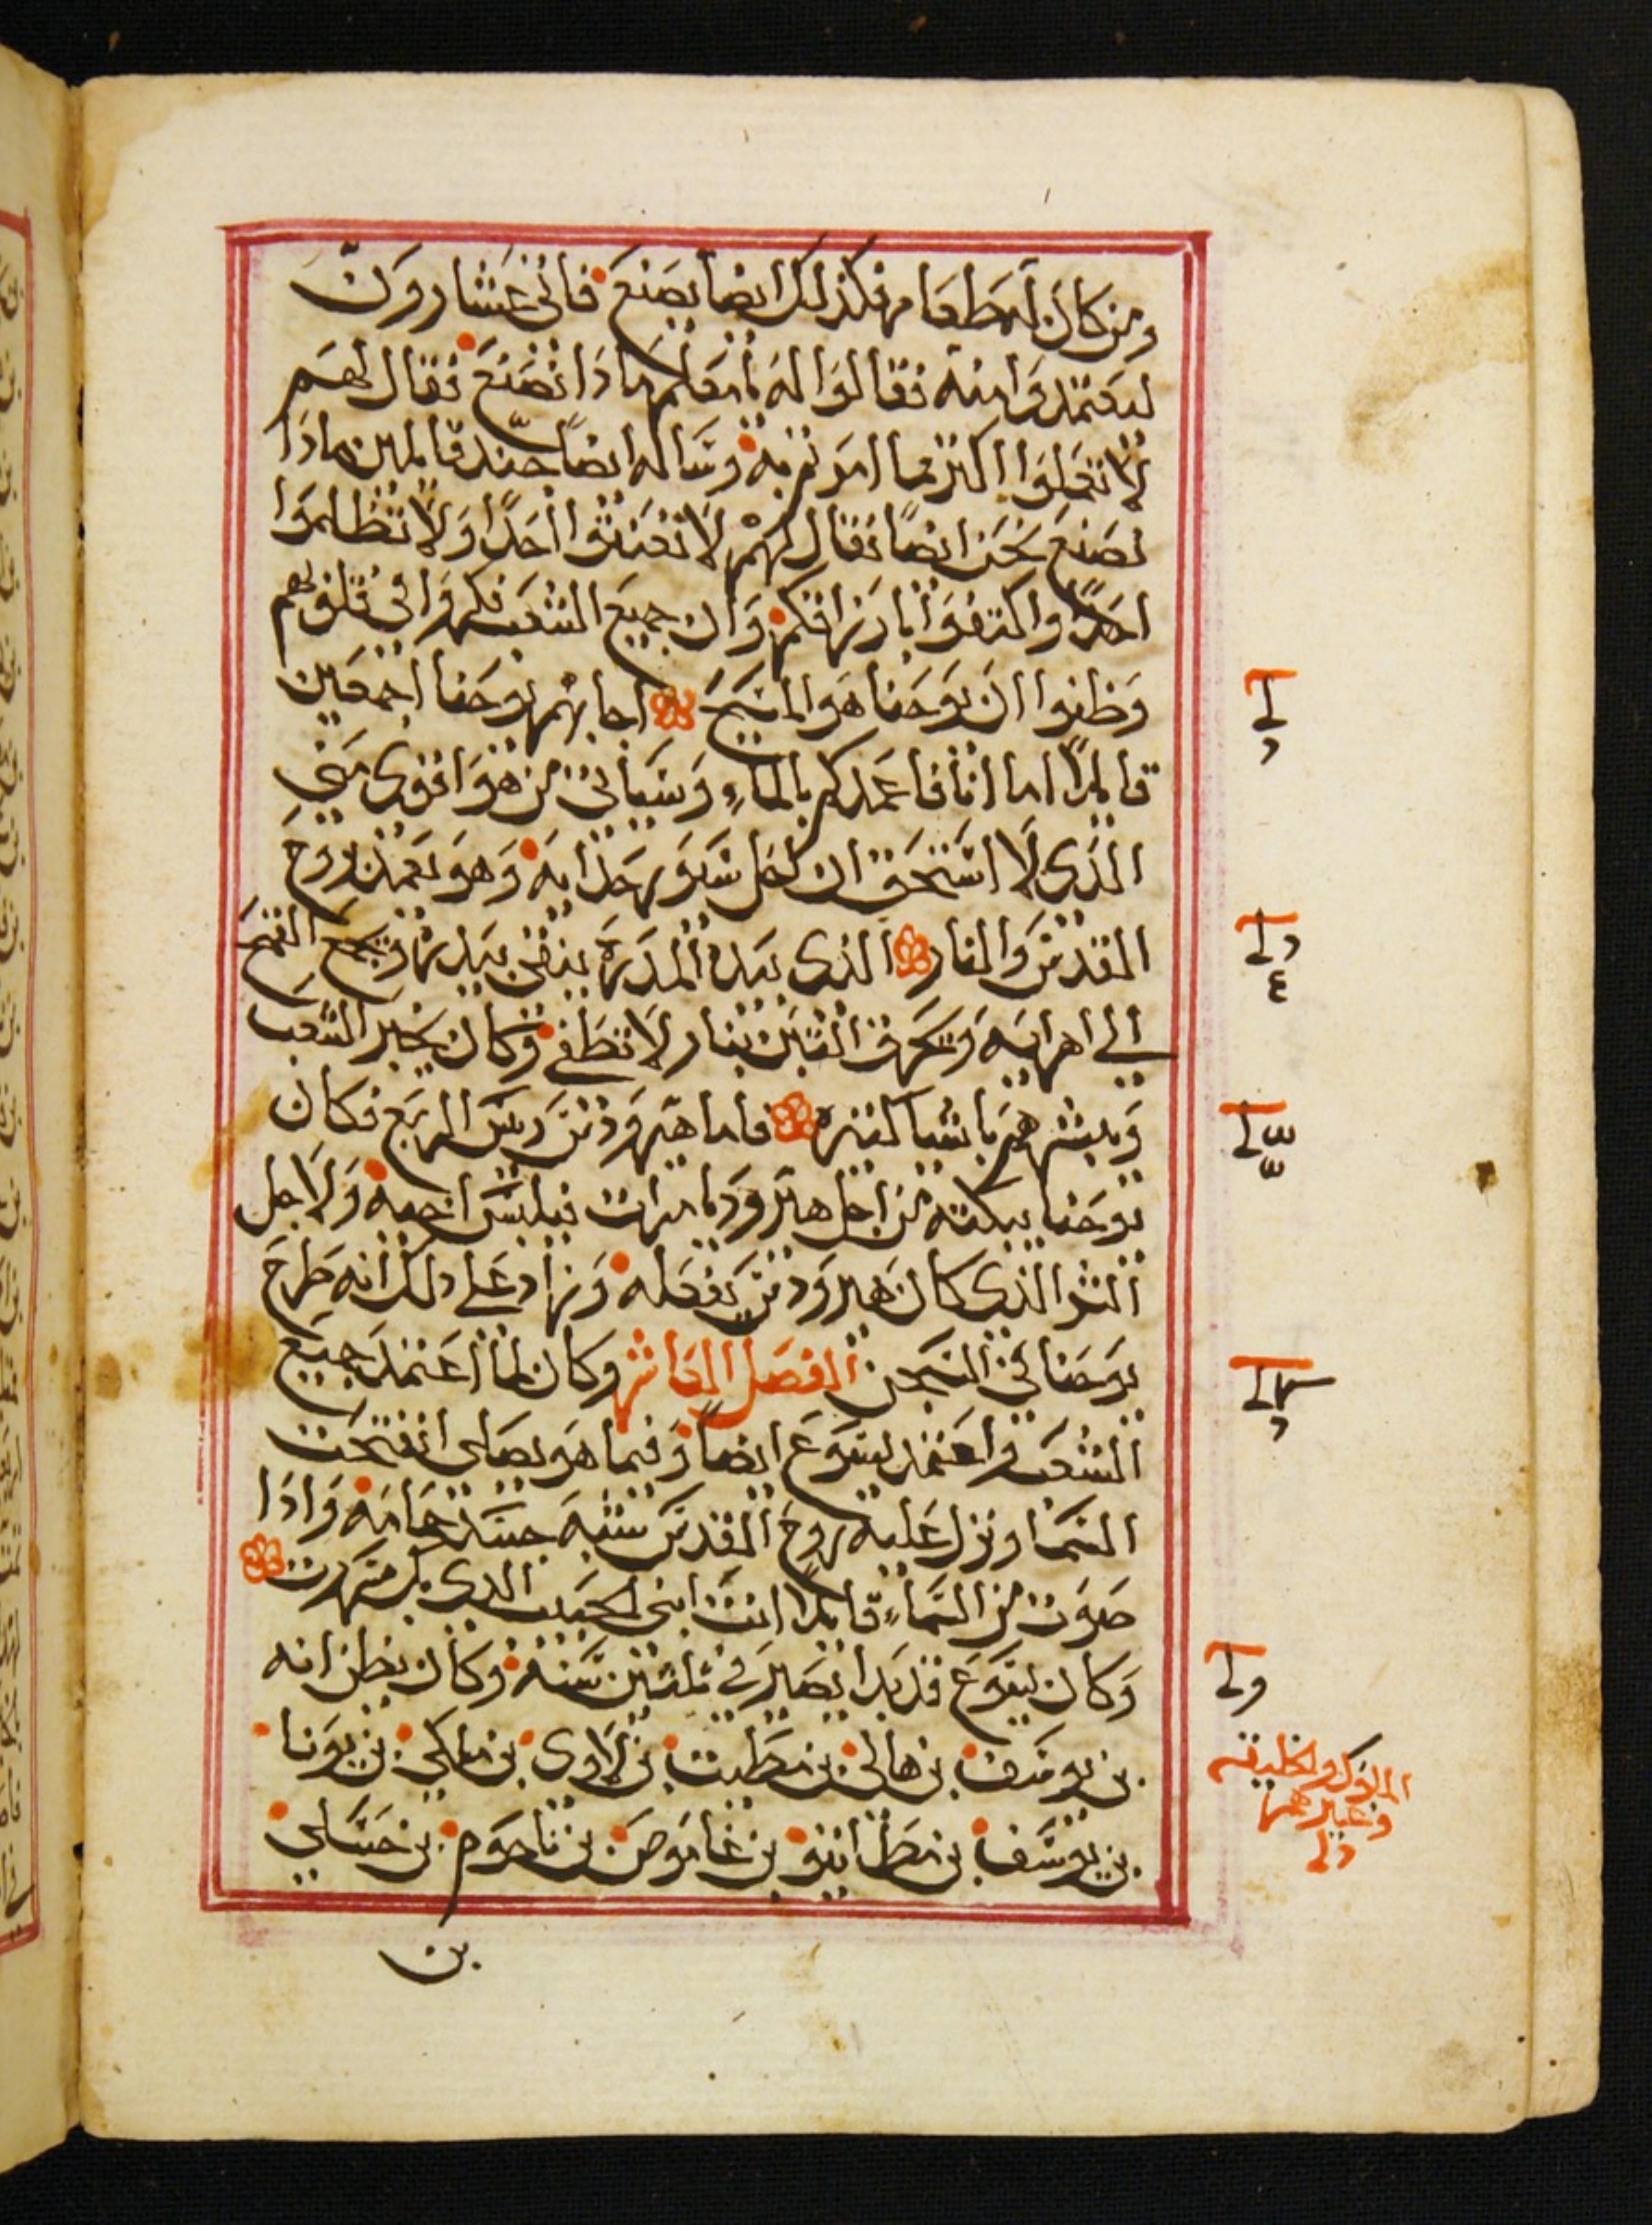 ومن كان له طعام فكذلك ايضا يصنع فاتى عشارون
ليعتمدوا منه فقالوا له يا معلم ماذا نصنع فقال لهم
لا تفعلوا اكثر مما امرتم به وسأله ايضاً جند قايلين ماذا
نصنع نحن ايضاً فقال لهم لا تعنتوا احداً ولا تظلموا
احداً واكتفوا بارزاقكم وان جميع الشعب فكروا في قلوبهم
وظنوا ان يوحنا هو المسيح اجابهم يوحنا اجمعين
قايلاً اما انا فاعمدكم بالماء وسياتي من هو اقوى مني
الذي لا استحق ان احل سيور حذايه وهو يعمدكم بروح
القدس والنار الذي بيده المدرة ينقي بيدره ويجمع القمح
الي اهرايه ويحرق التبن بنار لا تطفي وكان يخبر الشعب
ويبشرهم باشيا كثيره فاما هيرودس ريس الربع فكان
يوحنا يبكته من اجل هيروديا امرات فيلبس اخيه ولاجل
الشر الذي كان هيرودس يفعله وزاد علي ذلك انه طرح
يوحنا في السجن الفصل العاشر وكان لما اعتمد جميع
الشعب واعتمد يسوع ايضاً وفيما هو يصلي انفتحت
السما ونزل عليه روح القدس شبه جسد حمامه واذا
صوت من السماء قايلا انت ابني الحبيب الذي بك سررت
وكان يسوع قد بدا يصير في ثلثين سنه وكان يظن انه
بن يوسف بن هالي بن مطيت بن لاوي بن ملكي بن يونا
بن يوسف بن مطاتيو بن عاموص بن ناحوم بن حسلي
بن
الملوك والخليقه
وغيرهم